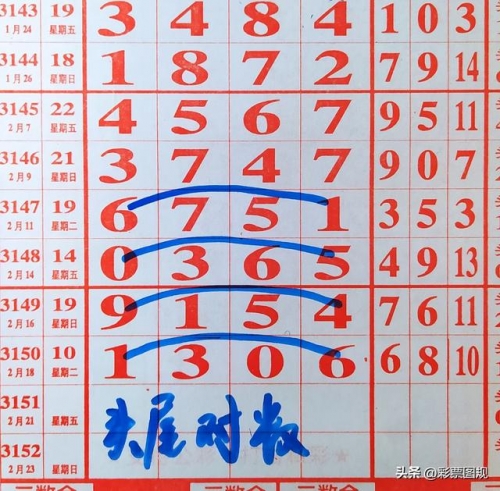 3143 19 3 4 8 4 4 1 0 3
1月24 星期五
3144 18 1 8 7 2 7 9 14
1月26 星期日
3145 22 4 5 6 7 9 5 11
2月7 星期五
3146 21 3 7 4 7 9 0 7
2月9 星期日
3147 19 6 7 5 1 3 5 3
2月11 星期二
3148 14 0 3 6 5 4 9 13
2月14 星期五
3149 19 9 1 5 4 7 6 11
2月16 星期日
3150 10 1 3 0 6 6 8 10
2月18 星期二
3151
2月21 星期五
头尾对数
3152
2月23 星期日
头条 @彩票图规